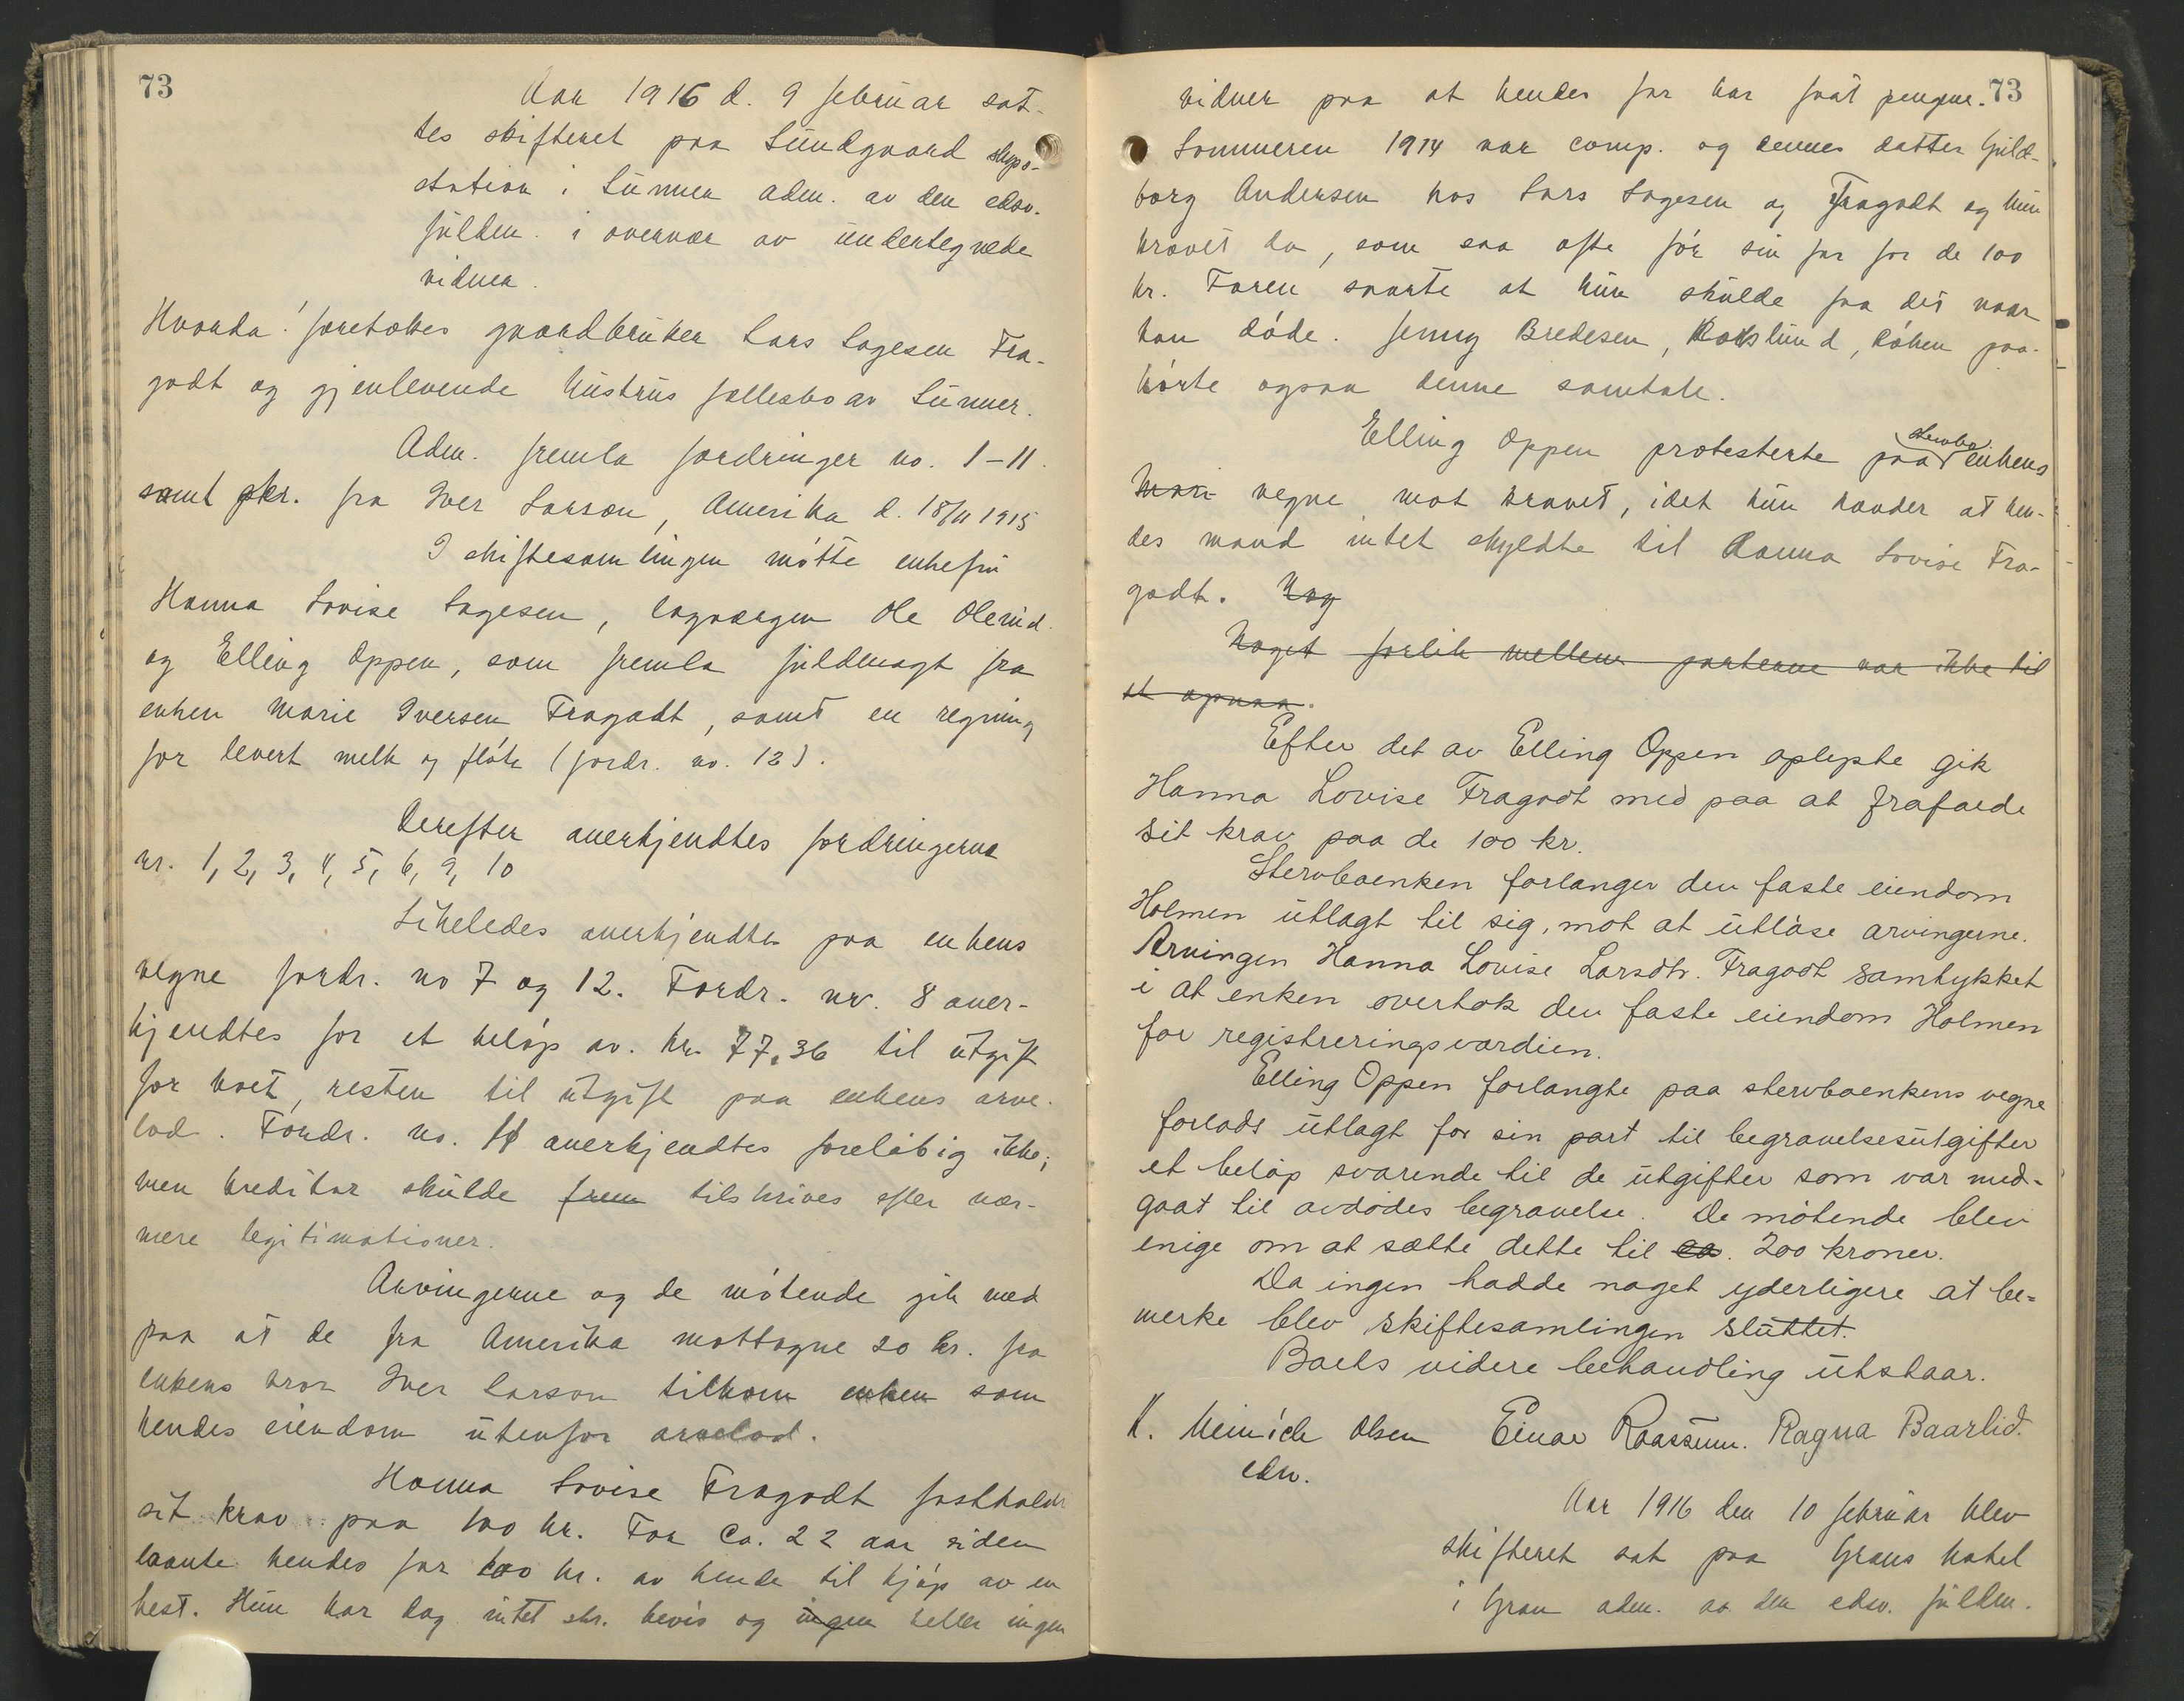 73
Aar 1916 d. 9 februar sat-
tes skifteret paa Lundgaard skys-
station i Lunner adm. av den edsv.
fuldm. i overvær av undertegnede
vidner.
Hvorda! foretokes gaardbruker Lars Lagesen Fra-
godt og gjenlevende hustrus fællesbo av Lunner.
Adm. fremla fordringer no. 1-11.
samt skr. fra Iver Larson, Amerika d. 18/11 1915
I skiftesamlingen møtte enkefru
Hanna Lovise Lagesen, lagværgen Ole Olerud
og Elling Oppen, som fremla fuldmagt fra
enken Marie Iversen Fragodt, samt en regning
for levert melk og fløte (fordr. no. 12).
Derefter anerkjendtes fordringerne
nr. 1, 2, 3, 4, 5, 6, 9, 10
Likeledes anerkjendtes paa enkens
vegne fordr. no 7 og 12. Fordr. nr. 8 aner-
kjendtes for et beløp av kr. 77,36 til utgift
for boet, resten til utgift paa enkens arve-
lod. Fordr. no. 11 anerkjendtes foreløbig ikke;
men kreditor skulde frem tilskrives efter nær-
mere legitimationer.
Arvingerne og de møtende gik med
paa at de fra Amerika mottagne 20 kr. fra
enkens bror Iver Larson tilkom enken som
hendes eiendom utenfor arvelod.
Hanna Lovise Fragodt fastholdt
sit krav paa 100 kr. For ca. 22 aar siden
laante hendes far 100 kr. av hende til kjøp av en
hest. Hun har dog intet skr. bevis og ingen heller ingen
73
vidner paa at hendes far har faat pengene.
Sommeren 1914 var comp. og dennes datter Guld-
borg Andersen hos Lars Lagesen og Fragodt og hun
krævet da, som saa ofte før sin far for de 100
kr. Faren svarte at hun skulde faa det naar
han døde. Jenny Bredesen, Rokslund, Røken paa-
hørte ogsaa denne samtale.
Elling Oppen protesterte paa stervbo enkens
Mari vegne mot kravet, idet hun hævder at hen-
des mand intet skyldte til Hanna Lovise Fra-
godt. Nog
Noget forlik mellem parterne var ikke til
at opnaa.
Efter det av Elling Oppen oplyste gik
Hanna Lovise Fragodt med paa at frafalde
sit krav paa de 100 kr.
Stervboenken forlanger den faste eiendom
Holmen utlagt til sig, mot at utløse arvingerne.
Arvingen Hanna Lovise Larsdtr. Fragodt samtykket
i at enken overtok den faste eiendom Holmen
for registreringsværdien.
Elling Oppen forlangte paa stervboenkens vegne
forlods utlagt for sin part til begravelsesutgifter
et beløp svarende til de utgifter som var med-
gaat til avdødes begravelse. De møtende blev
enige om at sætte dette til ca. 200 kroner.
Da ingen hadde noget yderligere at be=
merke blev skiftesamlingen sluttet.
Boets videre behandling utstaar.
K. Meinich Olsen Einar Raassum. Ragna Baarlid.
edsv.
Aar 1916 den 10 februar blev
skifteret sat paa Grans hotel
i Gran adm. av den edsv. fuldm.